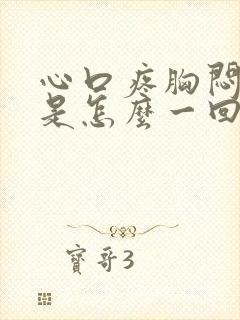 心口疼胸悶
是怎麼一回
寶哥3